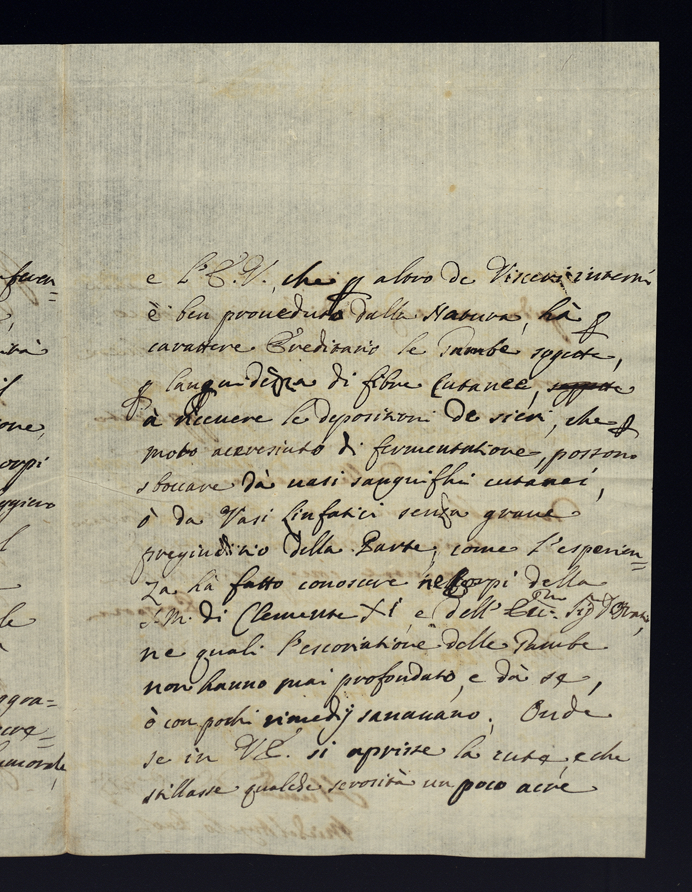 e L'E.V., che p altro de Visceri interni
è ben proueduta dalla Natura, hà p
carattere Ereditario le Gambe sogette,
p languidezza di fibre Cutanee, sogette
à riceuere le depositioni de sieri, che p
moto accresciuto di fermentatione, possono
sboccare dà uasi sanguifhi cutanei,
ò da Vasi Linfatici senza graue
pregiuditio della Parte, come l'esperien=
za hà fatto conoscere ne Corpi della
S.M. di Clemente XI, e dell'
ne quali l'escoriatione delle Gambe
non hanno mai profondato, e dà se,
ò con pochi rimedij sanauano. Onde
se in V.E. si aprisse la cute, e che
stillasse qualche serosità un poco acre